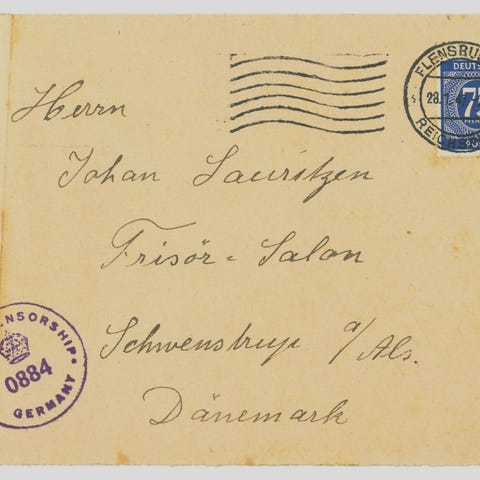 FLENSBU
28.
REICHS
DEUTS
75
PFEN
Herrn
Johan Lauritzen
Frisör = Salon
Schwenstrup a/Als.
Dänemark
ENSORSHIP
0884
GERMANY